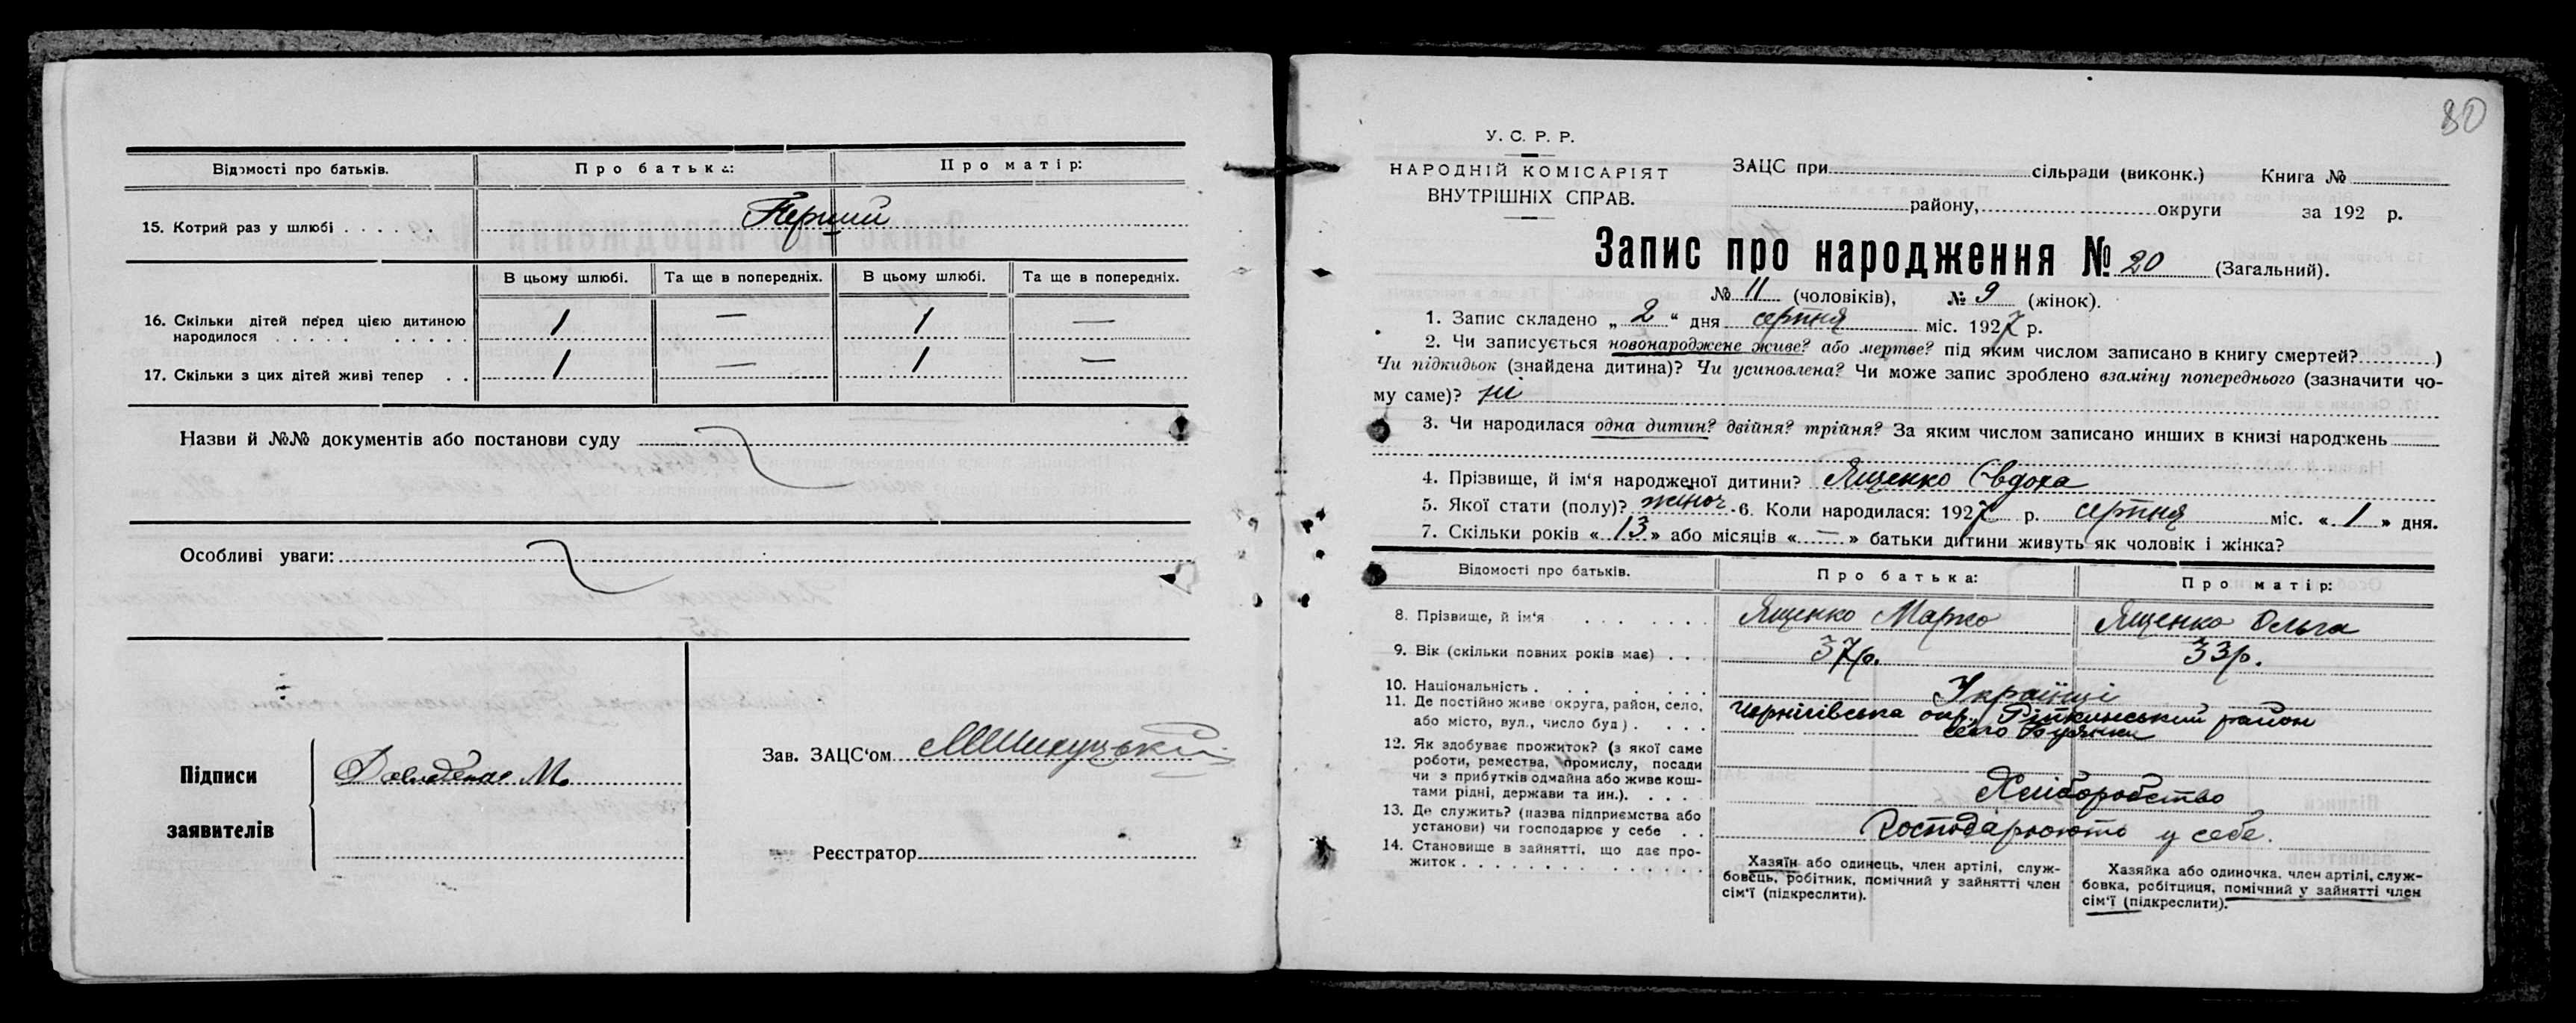 Відомості про батьків. Про батька: Про матір:
15. Котрий раз у шлюбі Перший
В цьому шлюбі. Та ще в попередніх. В цьому шлюбі. Та ще в попередніх.
16. Скільки дітей перед цією дитиною
народилося 1 — 1 —
17. Скільки з цих дітей живі тепер 1 — 1 —
Назви й №№ документів або постанови суду
Особливі уваги:
Підписи
заявителів
М.
Зав. ЗАЦС'ом
Реєстратор
80
У. С. Р. Р.
НАРОДНІЙ КОМІСАРІЯТ
ВНУТРІШНІХ СПРАВ.
ЗАЦС при сільради (виконк.) Книга №
району, округи за 192 р.
Запис про народження № 20 (Загальний).
№ 11 (чоловіків), № 9 (жінок).
1. Запис складено „ 2 “ дня серпня міс. 1927 р.
2. Чи записується новонароджене живе? або мертве? під яким числом записано в книгу смертей? )
Чи підкидьок (знайдена дитина)? Чи усиновлена? Чи може запис зроблено взаміну попереднього (зазначити чо-
му саме)? ні
3. Чи народилася одна дитин? двійня? трійня? За яким числом записано инших в книзі народжень
4. Прізвище, й ім'я народженої дитини? Ященко Євдоха
5. Якої стати (полу)? жіноч. 6. Коли народилася: 1927 р. серпня міс. « 1 » дня.
7. Скільки років « 13 » або місяців « — » батьки дитини живуть як чоловік і жінка?
Відомості про батьків. Про батька: Про матір:
8. Прізвище, й ім'я Ященко Марко Ященко Ольга
9. Вік (скільки повних років має) 37р. 33р.
10. Національність Українці
11. Де постійно живе округа, район, село, Чернігівська окр. Ріпкинський район
або місто, вул., число буд). село
12. Як здобуває прожиток? (з якої саме
роботи, ремества, промислу, посади
чи з прибутків одмайна або живе кош-
тами рідні, держави та ин.). Хліборобство
13. Де служить? (назва підприємства або
установи) чи господарює у себе Господарюють у себе.
14. Становище в зайнятті, що дає про-
житок
Хазяїн або одинець, член артілі, служ-
бовець, робітник, помічний у зайнятті член
сім'ї (підкреслити).
Хазяйка або одиночка, член артілі, служ-
бовка, робітциця, помічний у зайнятті член
сім'ї (підкреслити).